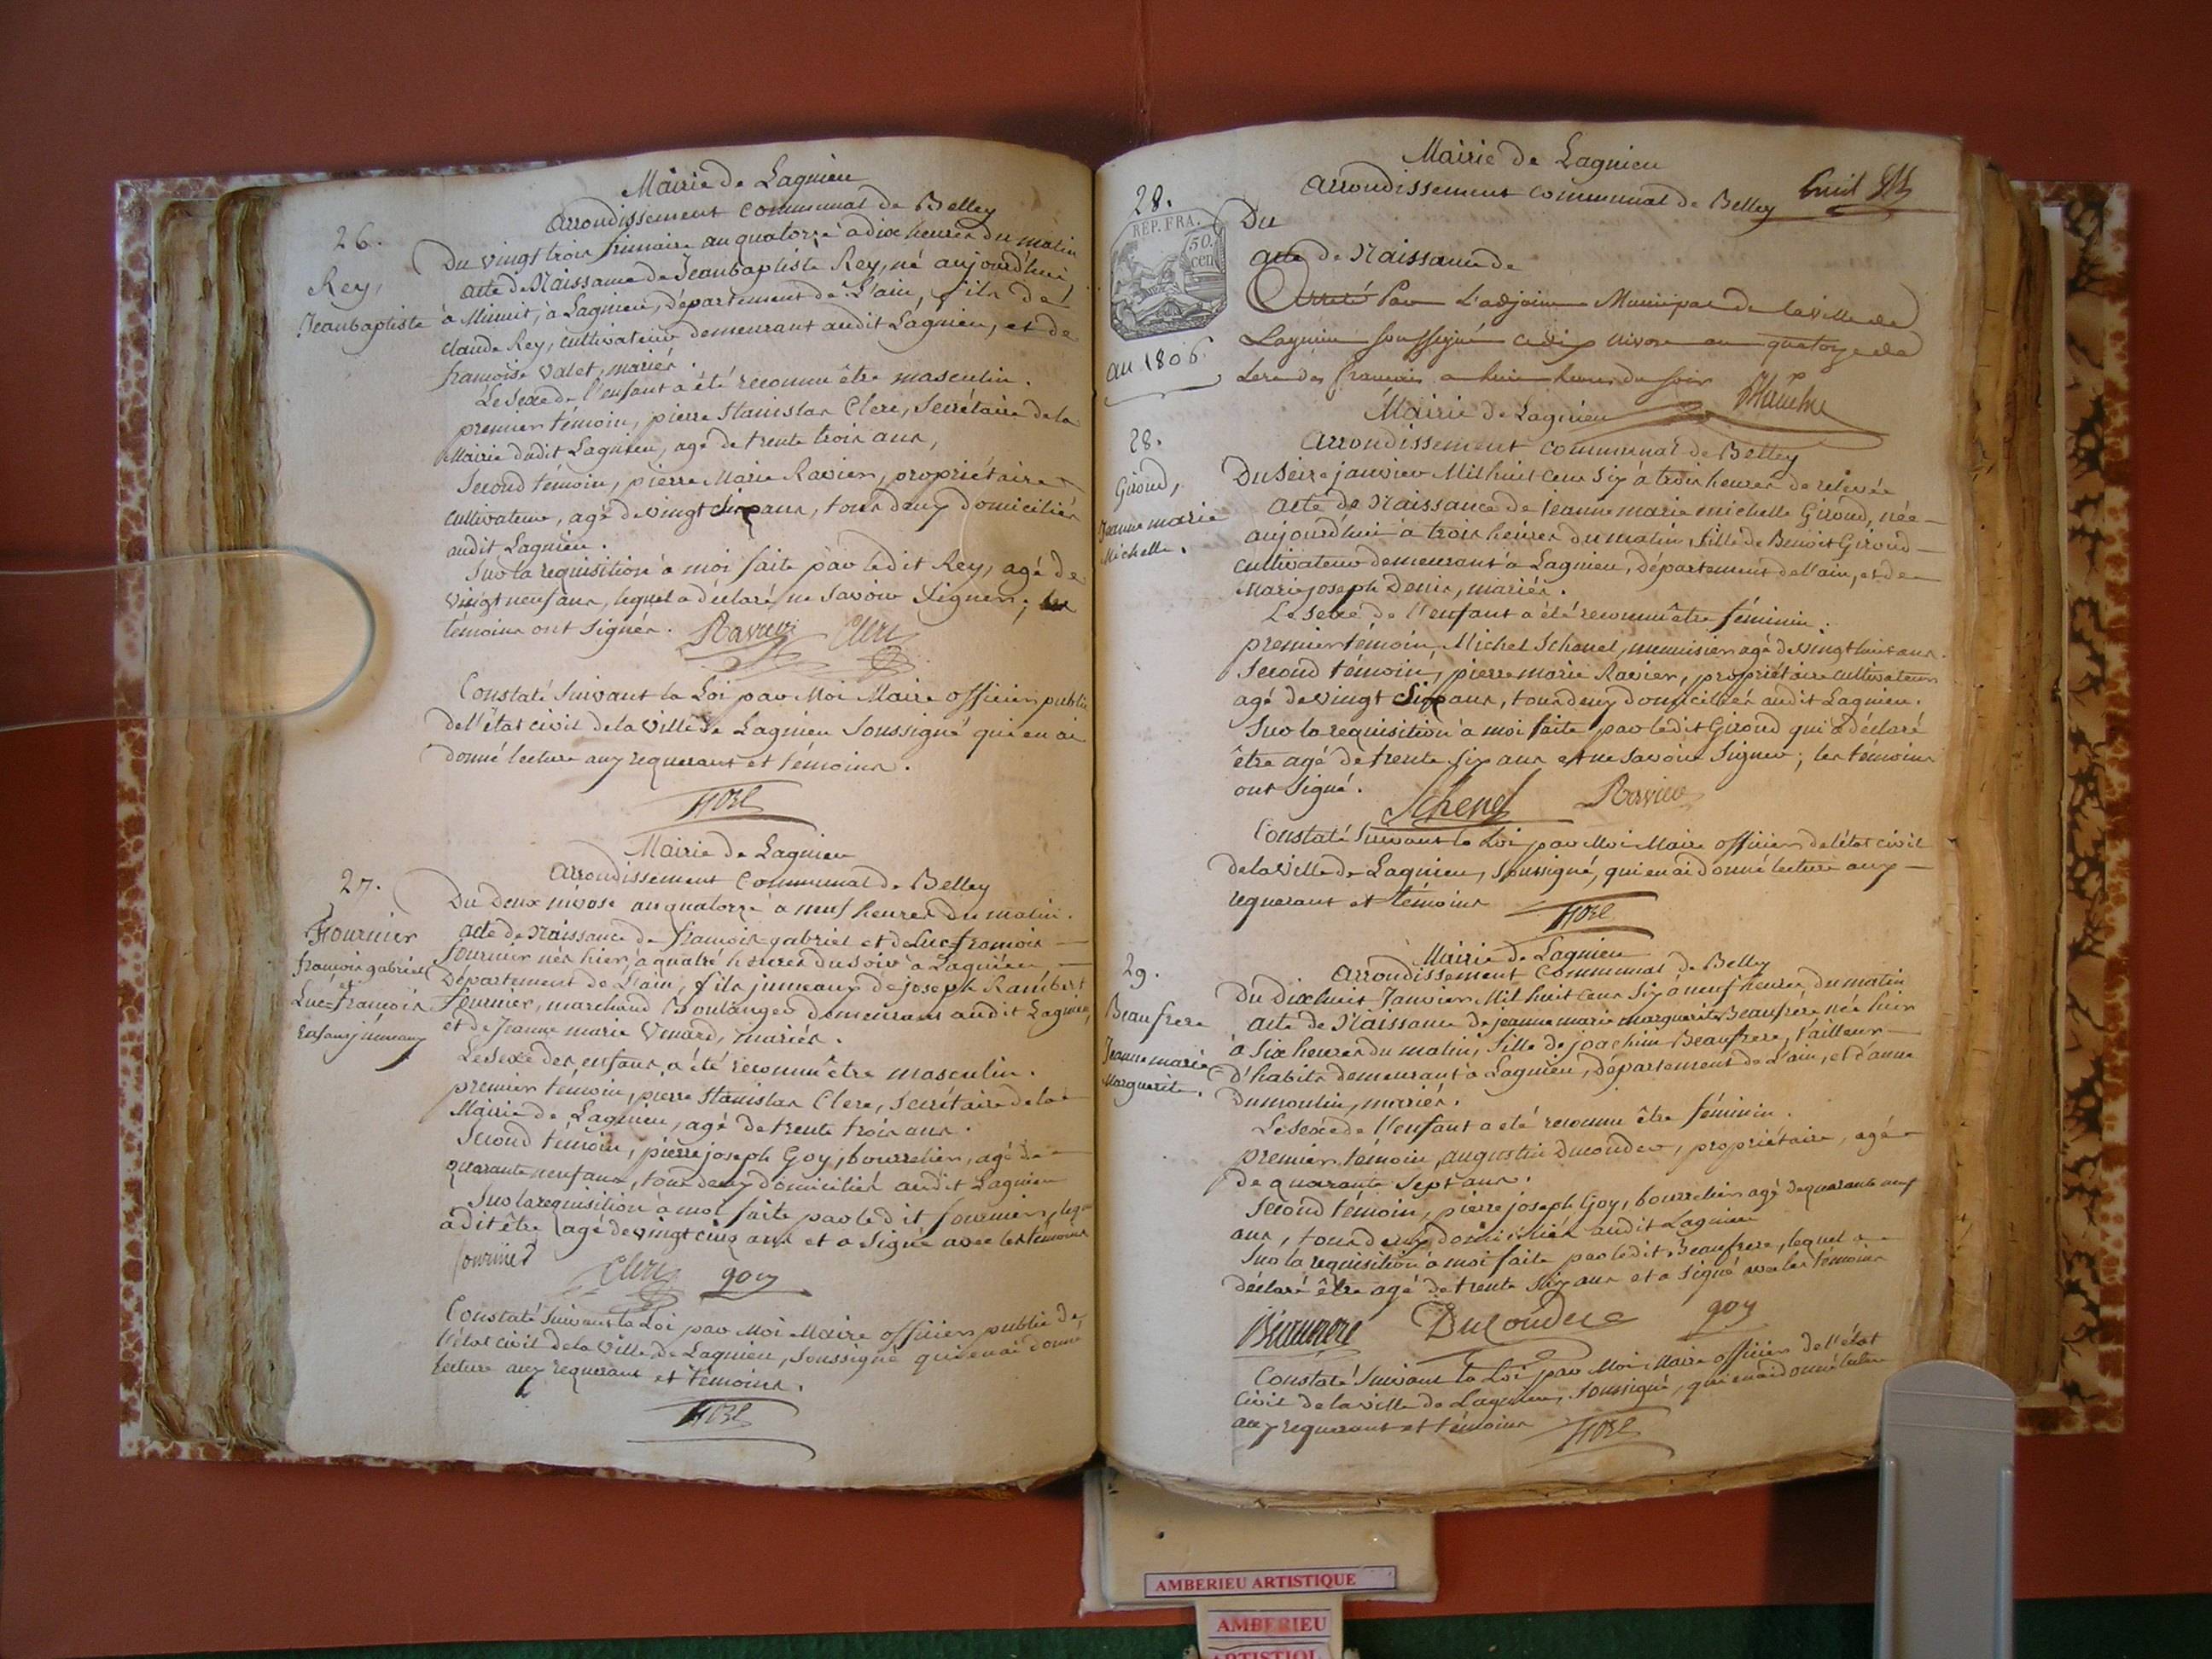 Mairie de Lagnieu
arrondissement communal de Belley
26.
Rey,
Jeanbaptiste
Du vingt trois frimaire an quatorze à dix heures du matin
acte de Naissance de Jeanbaptiste Rey, né aujourd'hui,
à Minuit, à Lagnieu, Département de L'ain, fils de
claude Rey, cultivateur demeurant audit Lagnieu, et de
françoise Valet, mariés.
Le sexe de l'enfant a été reconnu être masculin.
premier témoin, pierre Stanislas Clerc, Secrétaire de la
Mairie dudit Lagnieu, agé de trente trois ans,
Second témoin, pierre Marie Ravier, propriétaire
cultivateur, agé de vingt six ans, tous deux domiciliés
audit Lagnieu.
Sur la requisition à moi faite par ledit Rey, agé de
vingt neuf ans, lequel a déclaré ne Savoir Signer; les
témoins ont Signés. Ravier Clerc
Constaté Suivant la Loi par Moi Maire officier public
de l'état civil de la ville de Lagnieu Soussigné qui en ai
donné lecture aux requerant et témoins.
Mairie de Lagnieu
arrondissement Communal de Belley
27.
Fournier
françois gabriel
et
Luc=françois
Enfans jumeaux
Du Deux nivose an quatorze à neuf heures du matin.
acte de naissance de françois-gabriel et de Luc=françois
fournier nés hier, à quatre heures du soir à Lagnieu
Département de L'ain, fils jumeaux de joseph Rambert
fournier, marchand Boulanger demeurant audit Lagnieu,
et de Jeanne marie Venard, mariés.
Le sexe des enfans a été reconnu être masculin.
premier témoin, pierre Stanislas Clerc, Secrétaire de la
Mairie de Lagnieu, agé de trente trois ans.
Second témoin, pierre joseph Goy, bourrelier, agé de
quarante neuf ans, tous deux domiciliés audit Lagnieu
Sur la requisition à moi faite par ledit fournier, lequel
a dit être agé de vingt cinq ans et a Signé avec les témoins
fournier Clerc goy
Constaté Suivant la Loi par Moi Maire officier public de
l'état civil de la ville de Lagnieu, Soussigné qui en ai donné
lecture aux requerant et témoins.
Mairie de Lagnieu
arrondissement communal de Belley
28.
REP. FRA.
50.
cen
an 1806.
Du
acte de Naissance de
Arreté Par L'adjoint Municipal de la ville de
Lagnieu soussigné ce dix nivose an quatorze de
L'ere des français a huit heures du soir
Mairie de Lagnieu
arrondissement Communal de Belley
28.
Giroud,
Jeanne marie
Michelle.
Du seize janvier Mil huit cent Six à trois heures de relevée
acte de Naissance de jeanne marie michelle Giroud, née
aujourd'hui à trois heures du matin, fille de Benoit Giroud
cultivateur demeurant à Lagnieu, département de l'ain, et de
Marie joseph Denis, mariés.
Le sexe de l'enfant a été reconnu être féminin.
premier témoin, Michel Schenel, menuisier agé de vingt huit ans.
Second témoin, pierre marie Ravier, propriétaire cultivateur
agé de vingt six ans, tous deux domiciliés audit Lagnieu.
Sur la requisition à moi faite par ledit Giroud qui a déclaré
être agé de trente six ans et ne savoir Signer; les témoins
ont Signé. Schenel Ravier
Constaté Suivant la Loi par Moi Maire officier de l'état civil
de la ville de Lagnieu, Soussigné, qui en ai donné lecture aux
requerant et témoins
Mairie de Lagnieu
arrondissement Communal de Belley
29.
Beaufrere
Jeanne marie
Marguerite.
Du Dix huit Janvier Mil huit cent Six à neuf heures du matin
acte de Naissance de jeanne marie marguerite Beaufrere née hier
à Six heures du matin, fille de joachim Beaufrere, tailleur
d'habits demeurant à Lagnieu, département de L'ain, et d'anne
Dumoulin, mariés.
Le sexe de l'enfant a été reconnu être féminin.
premier témoin, augustin Ducouder, propriétaire, agé
de quarante Sept ans.
Second témoin, pierre joseph Goy, bourrelier agé de quarante neuf
ans, tous deux domiciliés audit Lagnieu
Sur la requisition à moi faite par ledit Beaufrere, lequel a
déclaré être agé de trente Six ans et a Signé avec les témoins
goy
Constaté Suivant la Loi par Moi Maire officier de l'état
civil de la ville de Lagnieu, Soussigné, qui en ai donné lecture
aux requerant et témoins
AMBERIEU ARTISTIQUE
AMBERIEU
ARTISTIQ